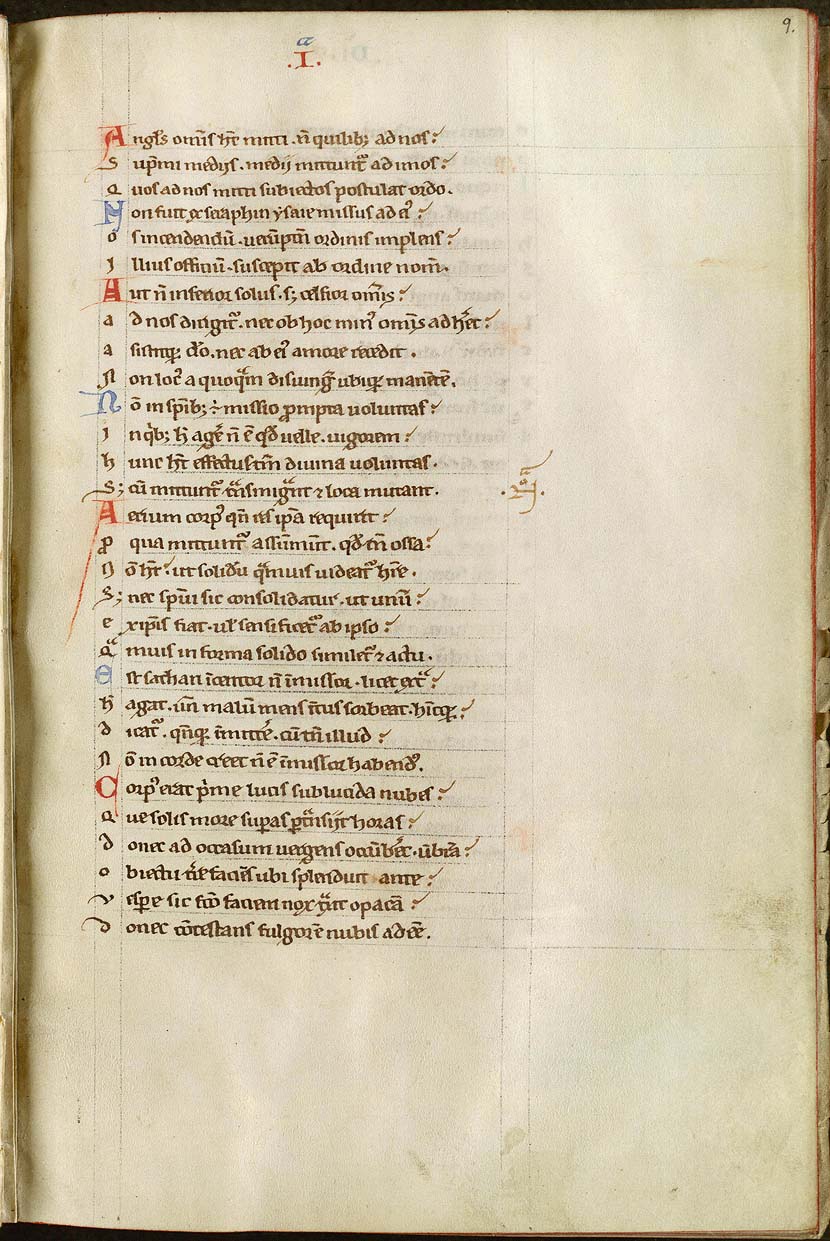 9.
a
.I.
Angl's om̄is hr̄e mitti . n̄ quilibꝫ ad nos
Supᵉmi medijs . medij mittunt᷑ ad imos
Quos ad nos mitti subiectos postulat ordo .
Non fuit ex seraphin ysaie missus ad eū
os incendendū . uerūptm̄ ordinis implens
Illius officiū . suscepit ab ordine nom̄ .
Aut n̄ inferior solus . sꝫ celsior om̄is
ad nos dirigit᷑ . nec ob hoc minꝰ om̄is adheret
assistitqꝫ dō . nec ab eiꝰ amore recedit .
Non locꝰ a quoqᵃm disiungit ubiqꝫ manētē .
Nō in spīb; ÷ missio ꝓmpta uoluntas
In qⁱb; h̄ agē n̄ ē qd̄ uelle . uigorem
hunc ht̄ effectus tm̄ diuina uoluntas .
Sꝫ cū mittunt᷑ tⁿsmigᵃnt ⁊ loca mutant .
Aerium corpꝰ qn̄ res ip̄a requirit
ꝓ qua mittunt᷑ assūmūt . qd̄ tn̄ ossa
Nō ht̄ . ut solidū qᵃmuis uideat᷑ hr̄e .
Sꝫ nec spūi sic consolidatur . ut unū
ex ip̄is fiat . ul' sensificet᷑ ab ipso
Qᵃmuis in forma solido similet᷑ ⁊ actu .
Est sathan īcentor n̄ īmissor . licet extᵃ
h̄ agat . un̄ malū mens īt᷒ sorbeat . hīcqꝫ
dicat᷑ . qn̄qꝫ īmittē . cū tn̄ illud
Nō in corde creet n̄ ē īmissor habendꝰ .
Corpꝰ erat pⁱme lucis sublucida nubes
Que solis more supᵃs ptᵃnsijt horas
donec ad occasum uergens occūbēt . ūbrā
obiectu tr̄e faciēs ubi splenduit ante
vespe sic fc̄o faciem nox tⁿxit opacā
donec cōtestans fulgorē nubis adeēt .